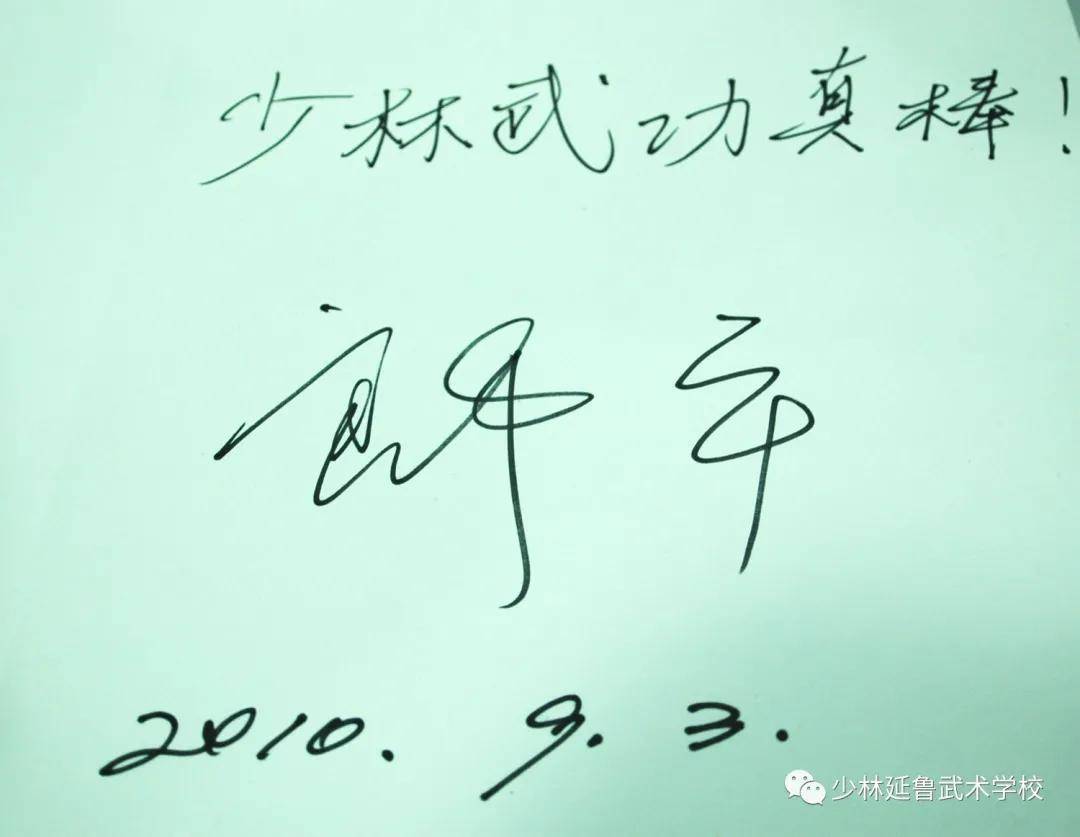 少林武功真棒!
2010. 9. 3.
少林延鲁武术学校